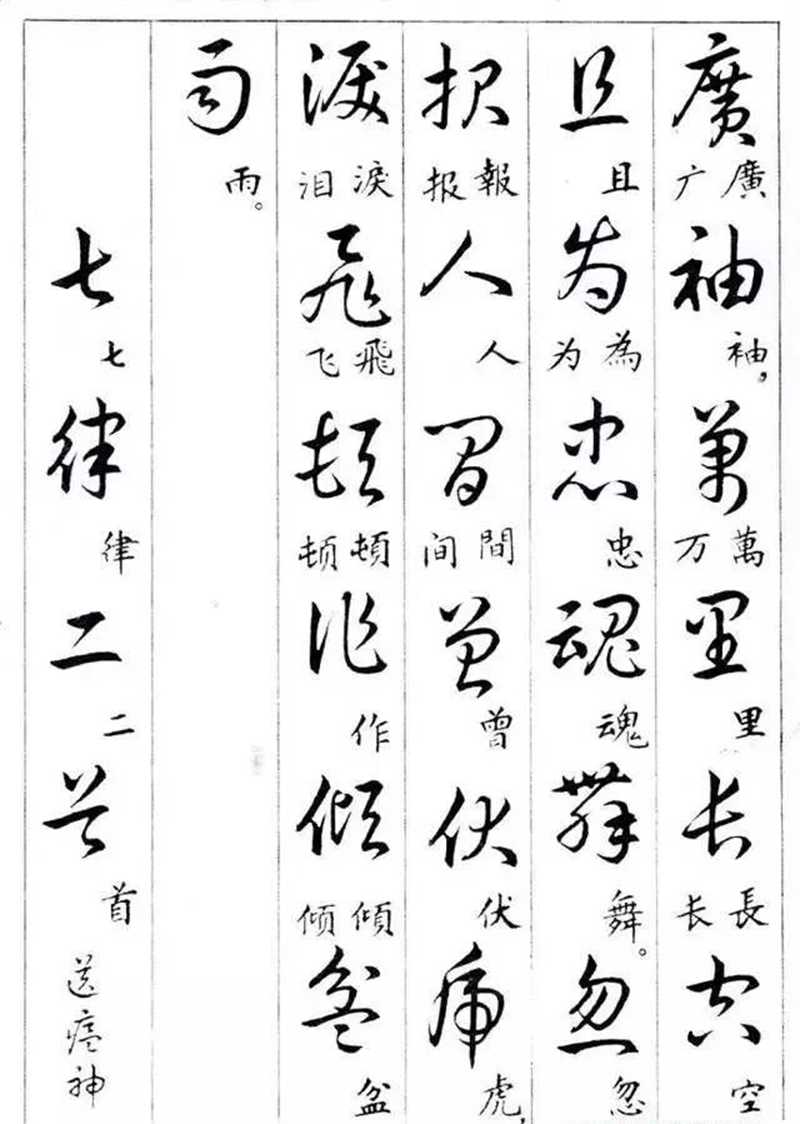 廣 廣 广 袖 袖， 萬 萬 万 里 里 长 長 长 空 空
且 且 为 為 为 忠 忠 魂 魂 舞 舞。 忽 忽
报 報 报 人 人 间 間 间 曾 曾 伏 伏 虎 虎，
淚 淚 泪 飛 飛 飞 頓 頓 顿 作 作 傾 傾 倾 盆 盆
雨 雨。
七 七 律 律 二 二 首 首 送瘟神